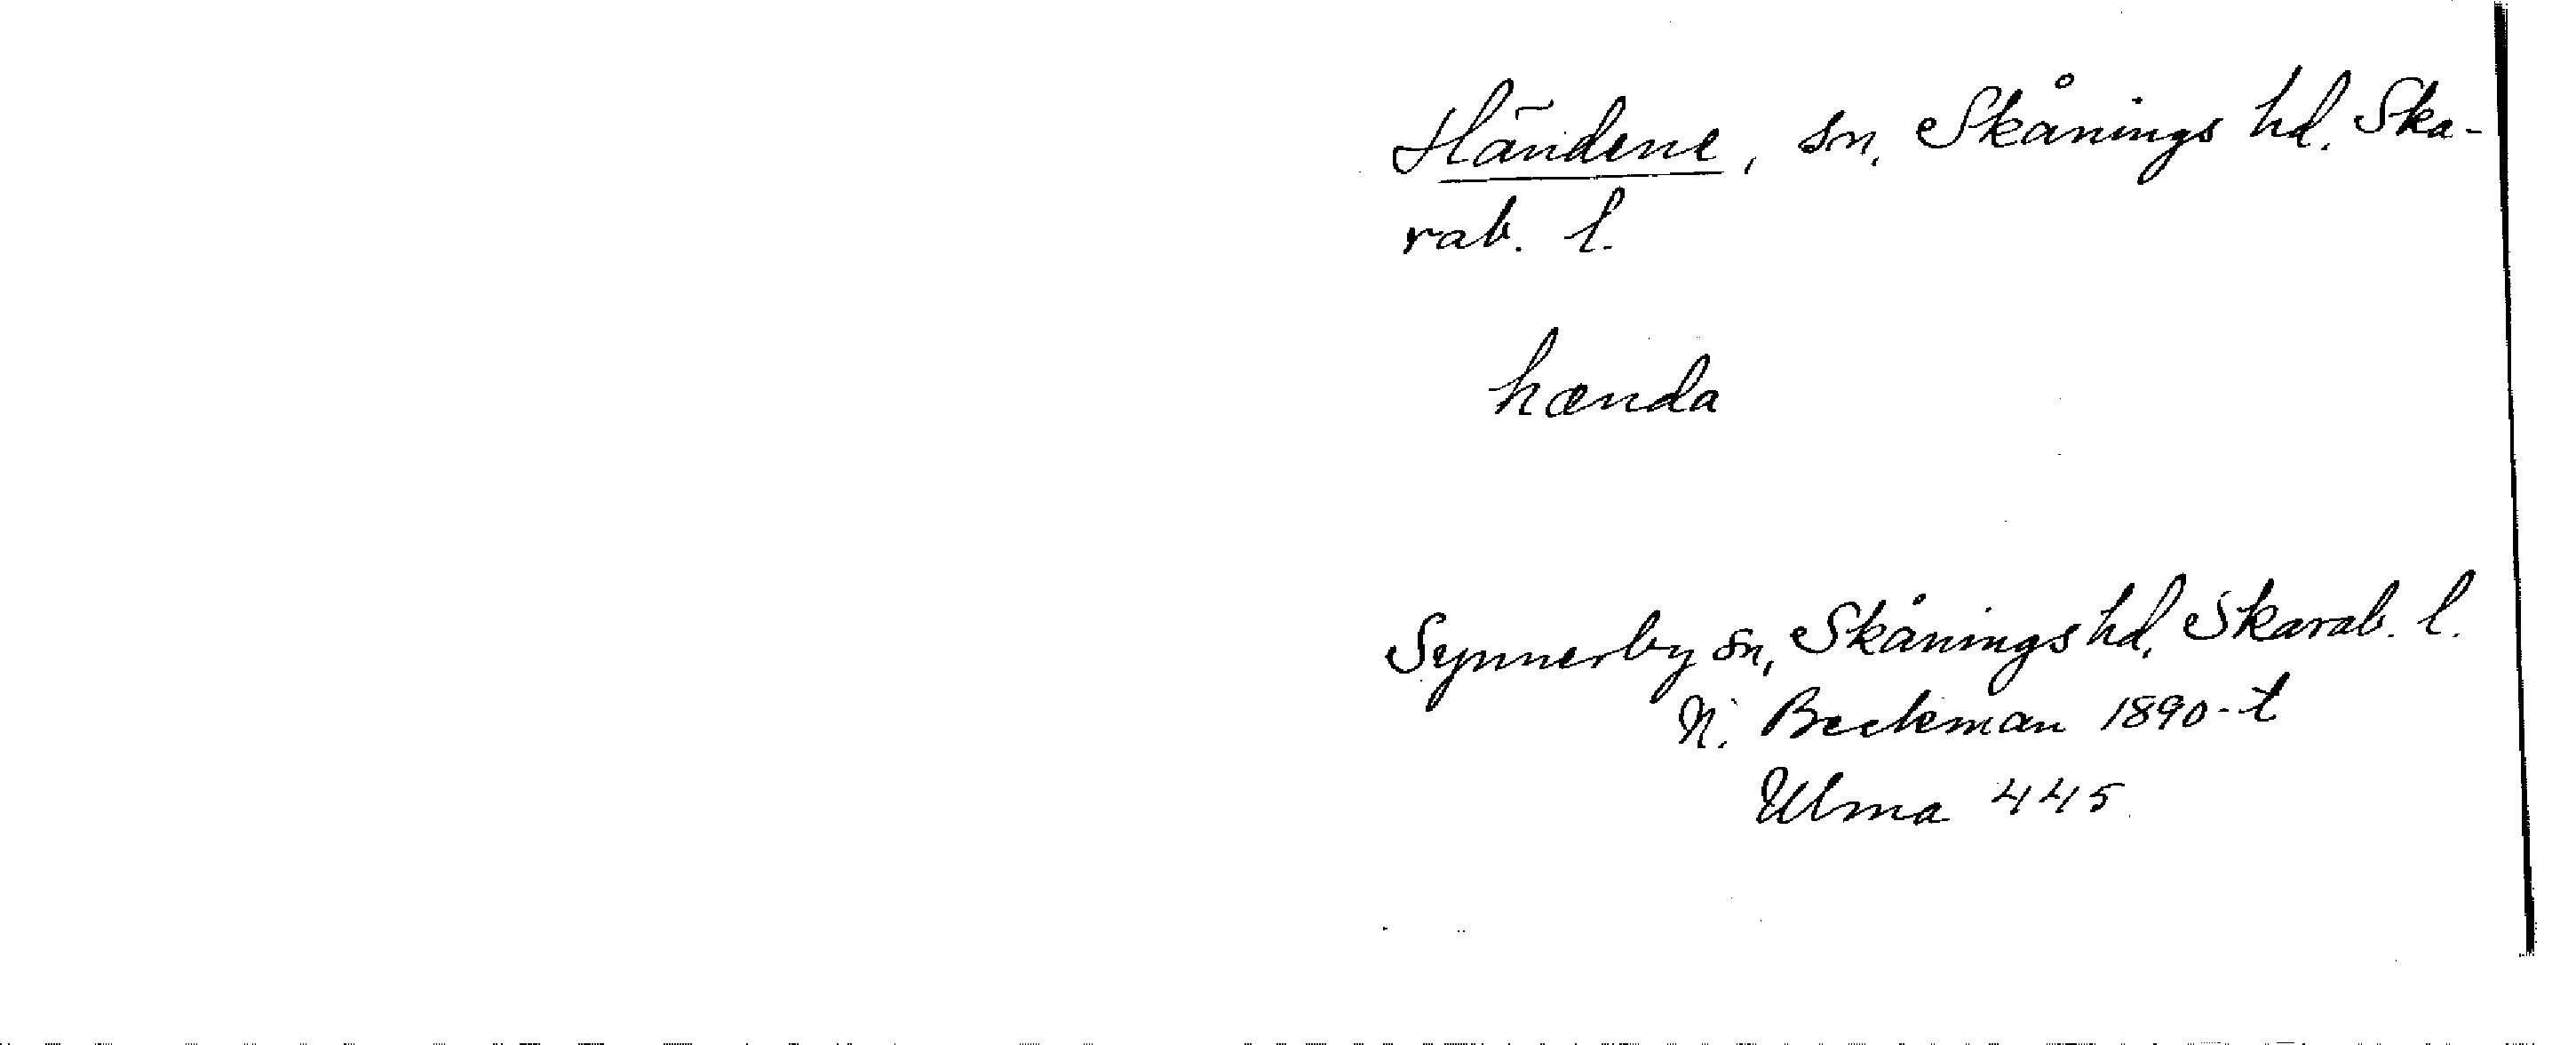 Händene, sn, Skånings hd. Ska-
rab. l.
hænda
Synnerby sn, Skånings hd, Skarab. l.
N. Beckman 1890-t
Ulma 445